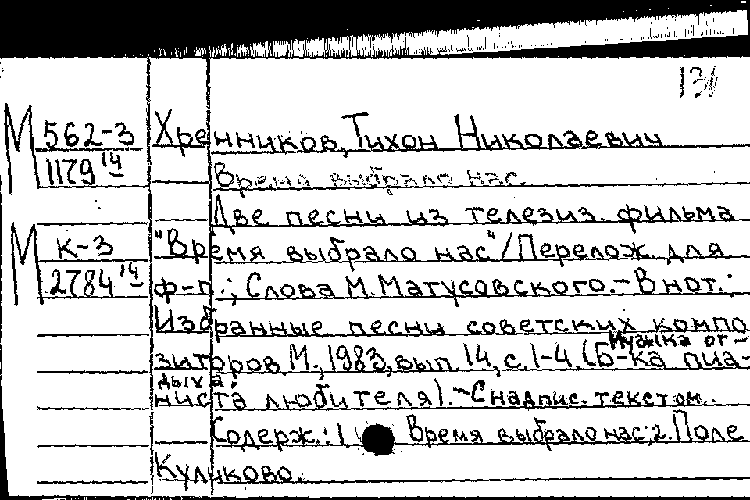 131
М 562-3 Хренников, Тихон Николаевич
1179 14 Время выбрало нас.
Две песни из телевиз. фильма
М К-3 "Время выбрало нас"/Перелож. для
2784 14 ф-п.; Слова М. Матусовского.-В нот.:
Избранные песни советских компо
зиторов. М., 1983, вып. 14, с. 1-4. (Б-ка пиа-
Музыка от-
дыха:
ниста любителя).-С надпис. текстом.
Содерж.: 1 Время выбрало нас; 2. Поле
Куликово.